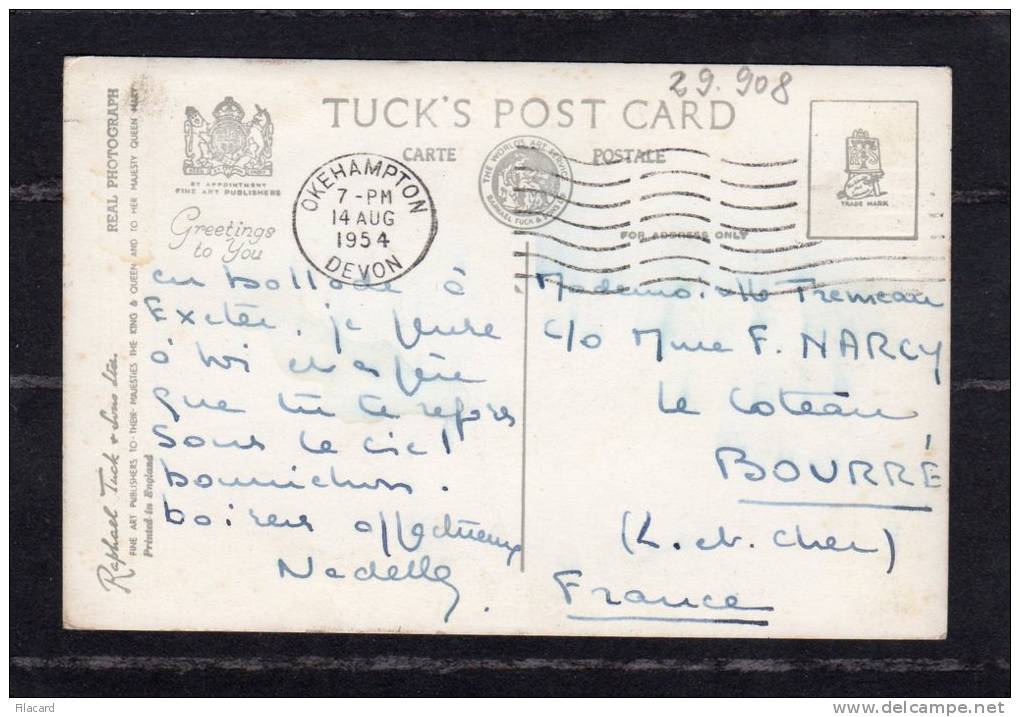 29.908
TUCK'S POST CARD
CARTE POSTALE
BY APPOINTMENT
FINE ART PUBLISHERS
THE WORLD'S ART SERVICE
RAPHAEL TUCK & SONS LTD
TRADE MARK
FOR ADDRESS ONLY
OKEHAMPTON
7-PM
14 AUG
1954
DEVON
Greetings
to You
REAL PHOTOGRAPH
Raphael Tuck & Sons Ltd.
FINE ART PUBLISHERS TO THEIR MAJESTIES THE KING & QUEEN AND TO HER MAJESTY QUEEN MARY
Printed in England
en ballade à
Exeter, je pense
à toi et espère
que tu te reposes
sous le ciel
baisers affectueux
Mademoiselle Tremeau
c/o Mme F. NARCY
Le Coteau
BOURRÉ
(L. et. Cher)
France
filacard
www.delcampe.net